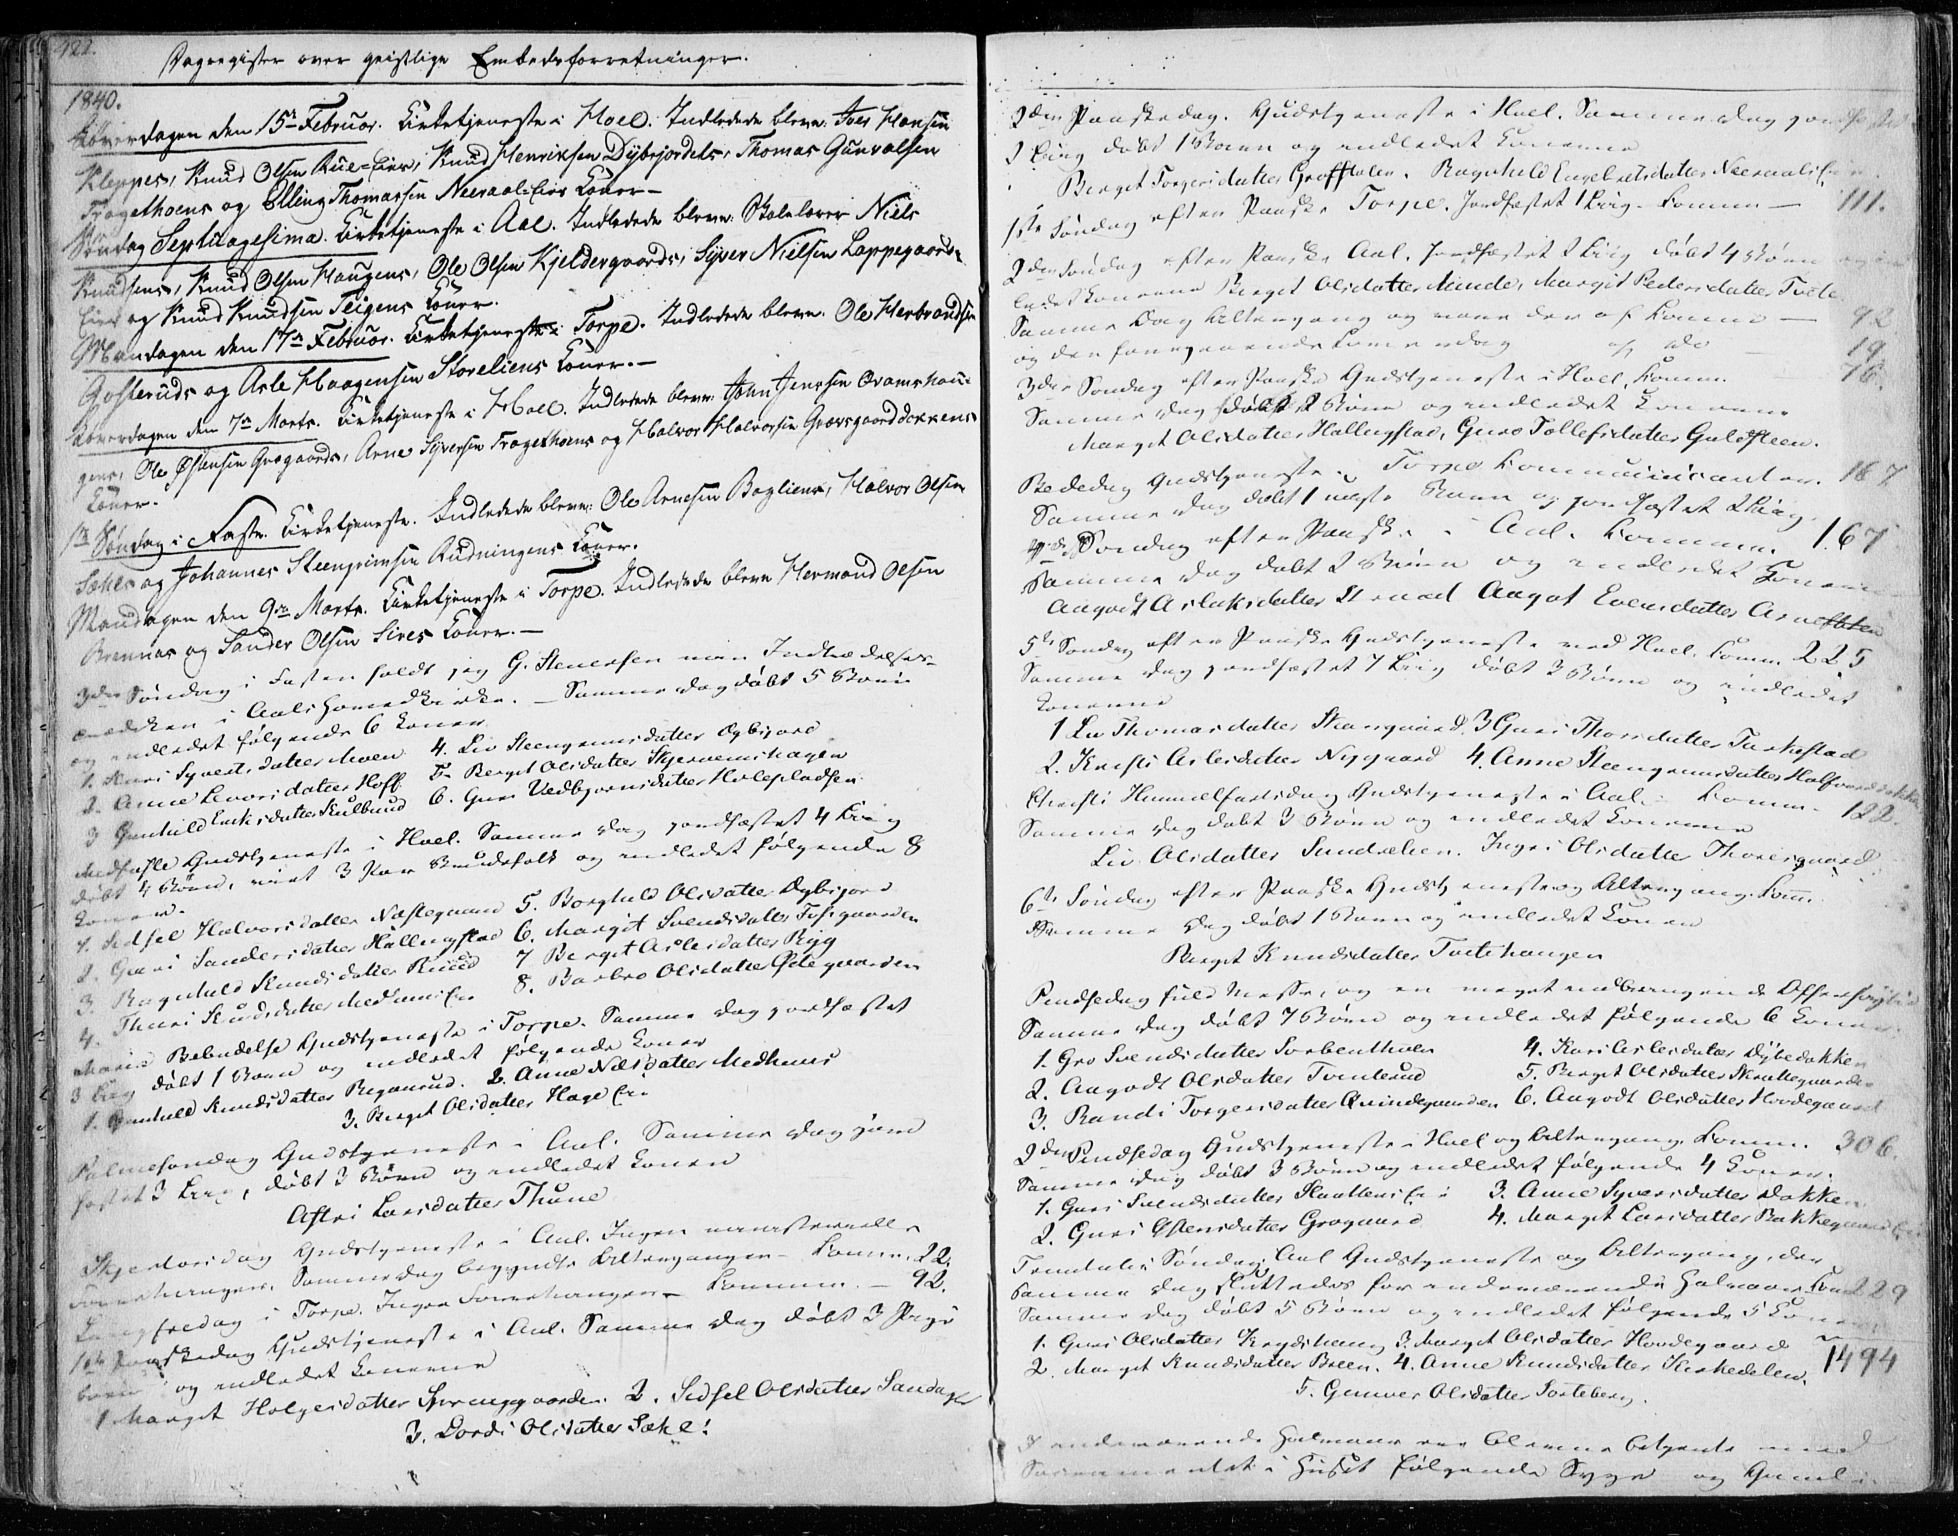 422.
Dagregister over geistlige Embedsforretninger.
1840.
Løverdagen den 15de Februar. Kirketjeneste i Hoel. Indledede bleve: Iver Hansen
Kleppes, Knud Olsen Rue-Eies, Knud Henriksen Dybsjordets, Thomas Gunvalsen
Tragethoens og Elling Thomassen Neeraal-Eies Koner.—
Søndag Septuagesima. Kirketjeneste i Aal. Indledede bleve: Skolelærer Niels
Knudsens, Knud Olsen Haugens, Ole Olsen Kjeldergaards, Syver Nielsen Lappegaards-
Eies og Knud Knudsen Teigens Koner.
Mandagen den 17de Februar. Kirketjeneste i Torpe. Indledede bleve: Ole Herbrandsen
Golsteruds og Asle Haagensen Storeliens Koner.—
Løverdagen den 7de Marts. Kirketjeneste i Hoel. Indledede bleve: John Jensen Qvamshau-
gens, Ole Østensen Grøgaards, Arne Syversen Tragethoens og Halvor Halvorsen Grævsgaarddokkens
Koner.
1ste Søndag i Faste. Kirketjeneste. Indledede bleve: Ole Arnesen Bagliens, Halvor Olsen
Sækes og Johannes Steengrimsen Rudningens Koner.
Mandagen den 9de Marts. Kirketjeneste i Torpe. Indledede bleve Hermand Olsen
Brennas og Sander Olsen Sires Koner.—
3die Søndag i Fasten holdt jeg G. Stenersen min Indtrædelses-
prædiken i Aals Hovedkirke. — Samme Dag døbt 5 Børn
og indledet følgende 6 Koner
1. Guri Syversdatter Moen 4. Liv Steengrimsdatter Opbigard
2. Anne Leversdatter Hoff 5. Berget Olsdatter Skjervemshagen
3 Gunhild Eriksdatter Kulbrud 6. Guri Vedbjørnsdatter Holepladsen
Midfaste Gudstjeneste i Hoel. Samme Dag jordfæstet 4 Liig
døbt 4 Børn, viet 3 Par Brudefolk og indledet følgende 8
Koner.
1. Sidsel Halvorsdatter Næstegaard 5. Borghild Olsdatter Dybsjord
2. Guri Sandersdatter Hallingstad 6. Margit Svendsdatter Tofsgaarden
3. Ragnhild Knudsdatter Ruud 7 Berget Aslesdatter Ryg
4. Thuri Knudsdatter Medhuus Eie 8. Barbro Olsdatter Ødegaarden
Mariæ Bebudelse Gudstjeneste i Torpe. Samme Dag jordfæstet
3 Liig døbt 1 Barn og indledet følgende Koner
1. Gunhild Knudsdatter Reganrud. 2. Anne Nilsdatter Medhuus
3. Berget Olsdatter Hage Eie.
Palmesøndag Gudstjeneste i Aal. Samme Dag jord
fæstet 3 Liig, døbt 3 Børn og indledet Konen
Astri Larsdatter Thune
Skjertorsdag Gudstjeneste i Aal. Ingen ministerielle
Forretninger. Samme Dag begyndte Altergangen — Komm. 22.
Langfredag i Torpe. Ingen Forretninger — Kommun. — 92.
1ste Paaskedag Gudstjeneste i Aal. Samme Dag døbt 3 Pige
børn og indledet Konerne
1 Marget Holgersdatter Sprenggaarden. 2. Sidsel Olsdatter Sandager
3. Dordi Olsdatter Sæke!
2den Paaskedag. Gudstjeneste i Hoel. Samme Dag jordfæstet
2 Liig døbt 1 Barn og indledet Konerne
Berget Torgersdatter Groffhalen. Ragnhild Engebretsdatter Neeraals Eie
1ste Søndag efter Paaske Torpe. Jordfæstet 1 Liig. Komm. — 111.
2den Søndag efter Paaske Aal. Jordfæstet 2 Liig døbt 4 Børn og ind
ledet Konerne Berget Olsdatter Ninde, Margit Pedersdatter Tveto
Samme Dag Altergang og vare der af Komm. — 92
og den foregaaende Løverdag af do — 19
3die Søndag efter Paaske Gudstjeneste i Hoel, Komm. 76.
Samme Dag døbt 2 Børn og indledet Konerne
Marget Olsdatter Hallingstad, Guro Tollefsdatter Guldsteen.
Bededag Gudstjeneste i Torpe Kommunicanter. 167
Samme Dag døbt 1 Barn og jordfæstet 2 Liig.
4de Søndag efter Paaske i Aal. Kommun. 167
Samme Dag døbt 2 Børn og indledet Konerne
Aagodt Aslaksdatter Strand Aagot Evensdatter Arnestølen
5te Søndag efter Paaske Gudstjeneste ved Hoel. Komm. 225
Samme Dag jordfæstet 7 Liig døbt 3 Børn og indledet
Konerne
1 Liv Thomasdatter Skarsgaard. 3 Guri Thorsdatter Torkestad
2. Kristi Aslesdatter Nygaard 4. Anne Steengrimsdatter Halfvorsdokken
Christi Himmelfartsdag Gudstjeneste i Aal. Komm. 122.
Samme Dag døbt 3 Børn og indledet Konerne
Liv Olsdatter Sundrelien. Ingri Olsdatter Thoresgaard
6te Søndag efter Paaske Gudstjeneste og Altergang. Komm.
Samme Dag døbt 1 Barn og indledet Konen
Berget Knudsdatter Tvetehaugen
Pindsedag fuld Messe, og en meget indbringende Offerhøitid
Samme Dag døbt 7 Børn og indledet følgende 6 Koner.
1. Gro Svendsdatter Sorbenthoen 4. Kari Aslesdatter Dybedokken
2. Aagodt Olsdatter Tvinterud 5. Berget Olsdatter Skrattegaarden
3. Randi Torgersdatter Qvindegaarden 6. Aagodt Olsdatter Hovdegaard
2den Pindsedag Gudstjeneste i Hoel og Altergang Komm. 306.
Samme Dag døbt 3 Børn og indledet følgende 4 Koner.
1. Guri Svendsdatter Slaattens Eie 3. Anne Syversdatter Dokken
2. Guri Østensdatter Grøgaard 4. Marget Larsdatter Bakkegaards Eie
Trinitatis Søndag Aal Gudstjeneste og Altergang, der
samme Dag sluttedes for indeværende Halvaar Komm 229
Samme Dag døbt 5 Børn og indledet følgende 5 Koner
1. Guri Olsdatter Krydshaug 3. Marget Olsdatter Hovdegaard
2. Marget Knudsdatter Breen. 4. Anne Knudsdatter Kirkedelen. 1494
5. Gunvor Olsdatter Sorteberg.
I indeværende Halvaar ere blevne betjente med
Sacramentet i Huset følgende Syge og Gamle